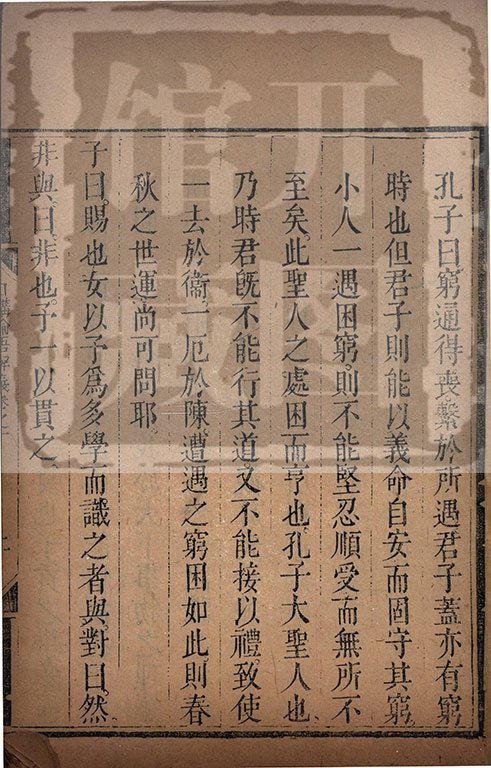 孔子曰。窮通得喪繫於所遇君子蓋亦有窮
時也但君子則能以義命自安而固守其窮。
小人一遇困窮。則不能堅忍順受而無所不
至矣。此聖人之處困而亨也。孔子大聖人也
乃時君旣不能行其道。又不能接以禮。致使
一去於衞。一厄於陳。遭遇之窮困如此。則春
秋之世運尚可問耶。
子曰。賜也女以予爲多學而識之者與。對曰。然
非與。曰。非也。予一以貫之。